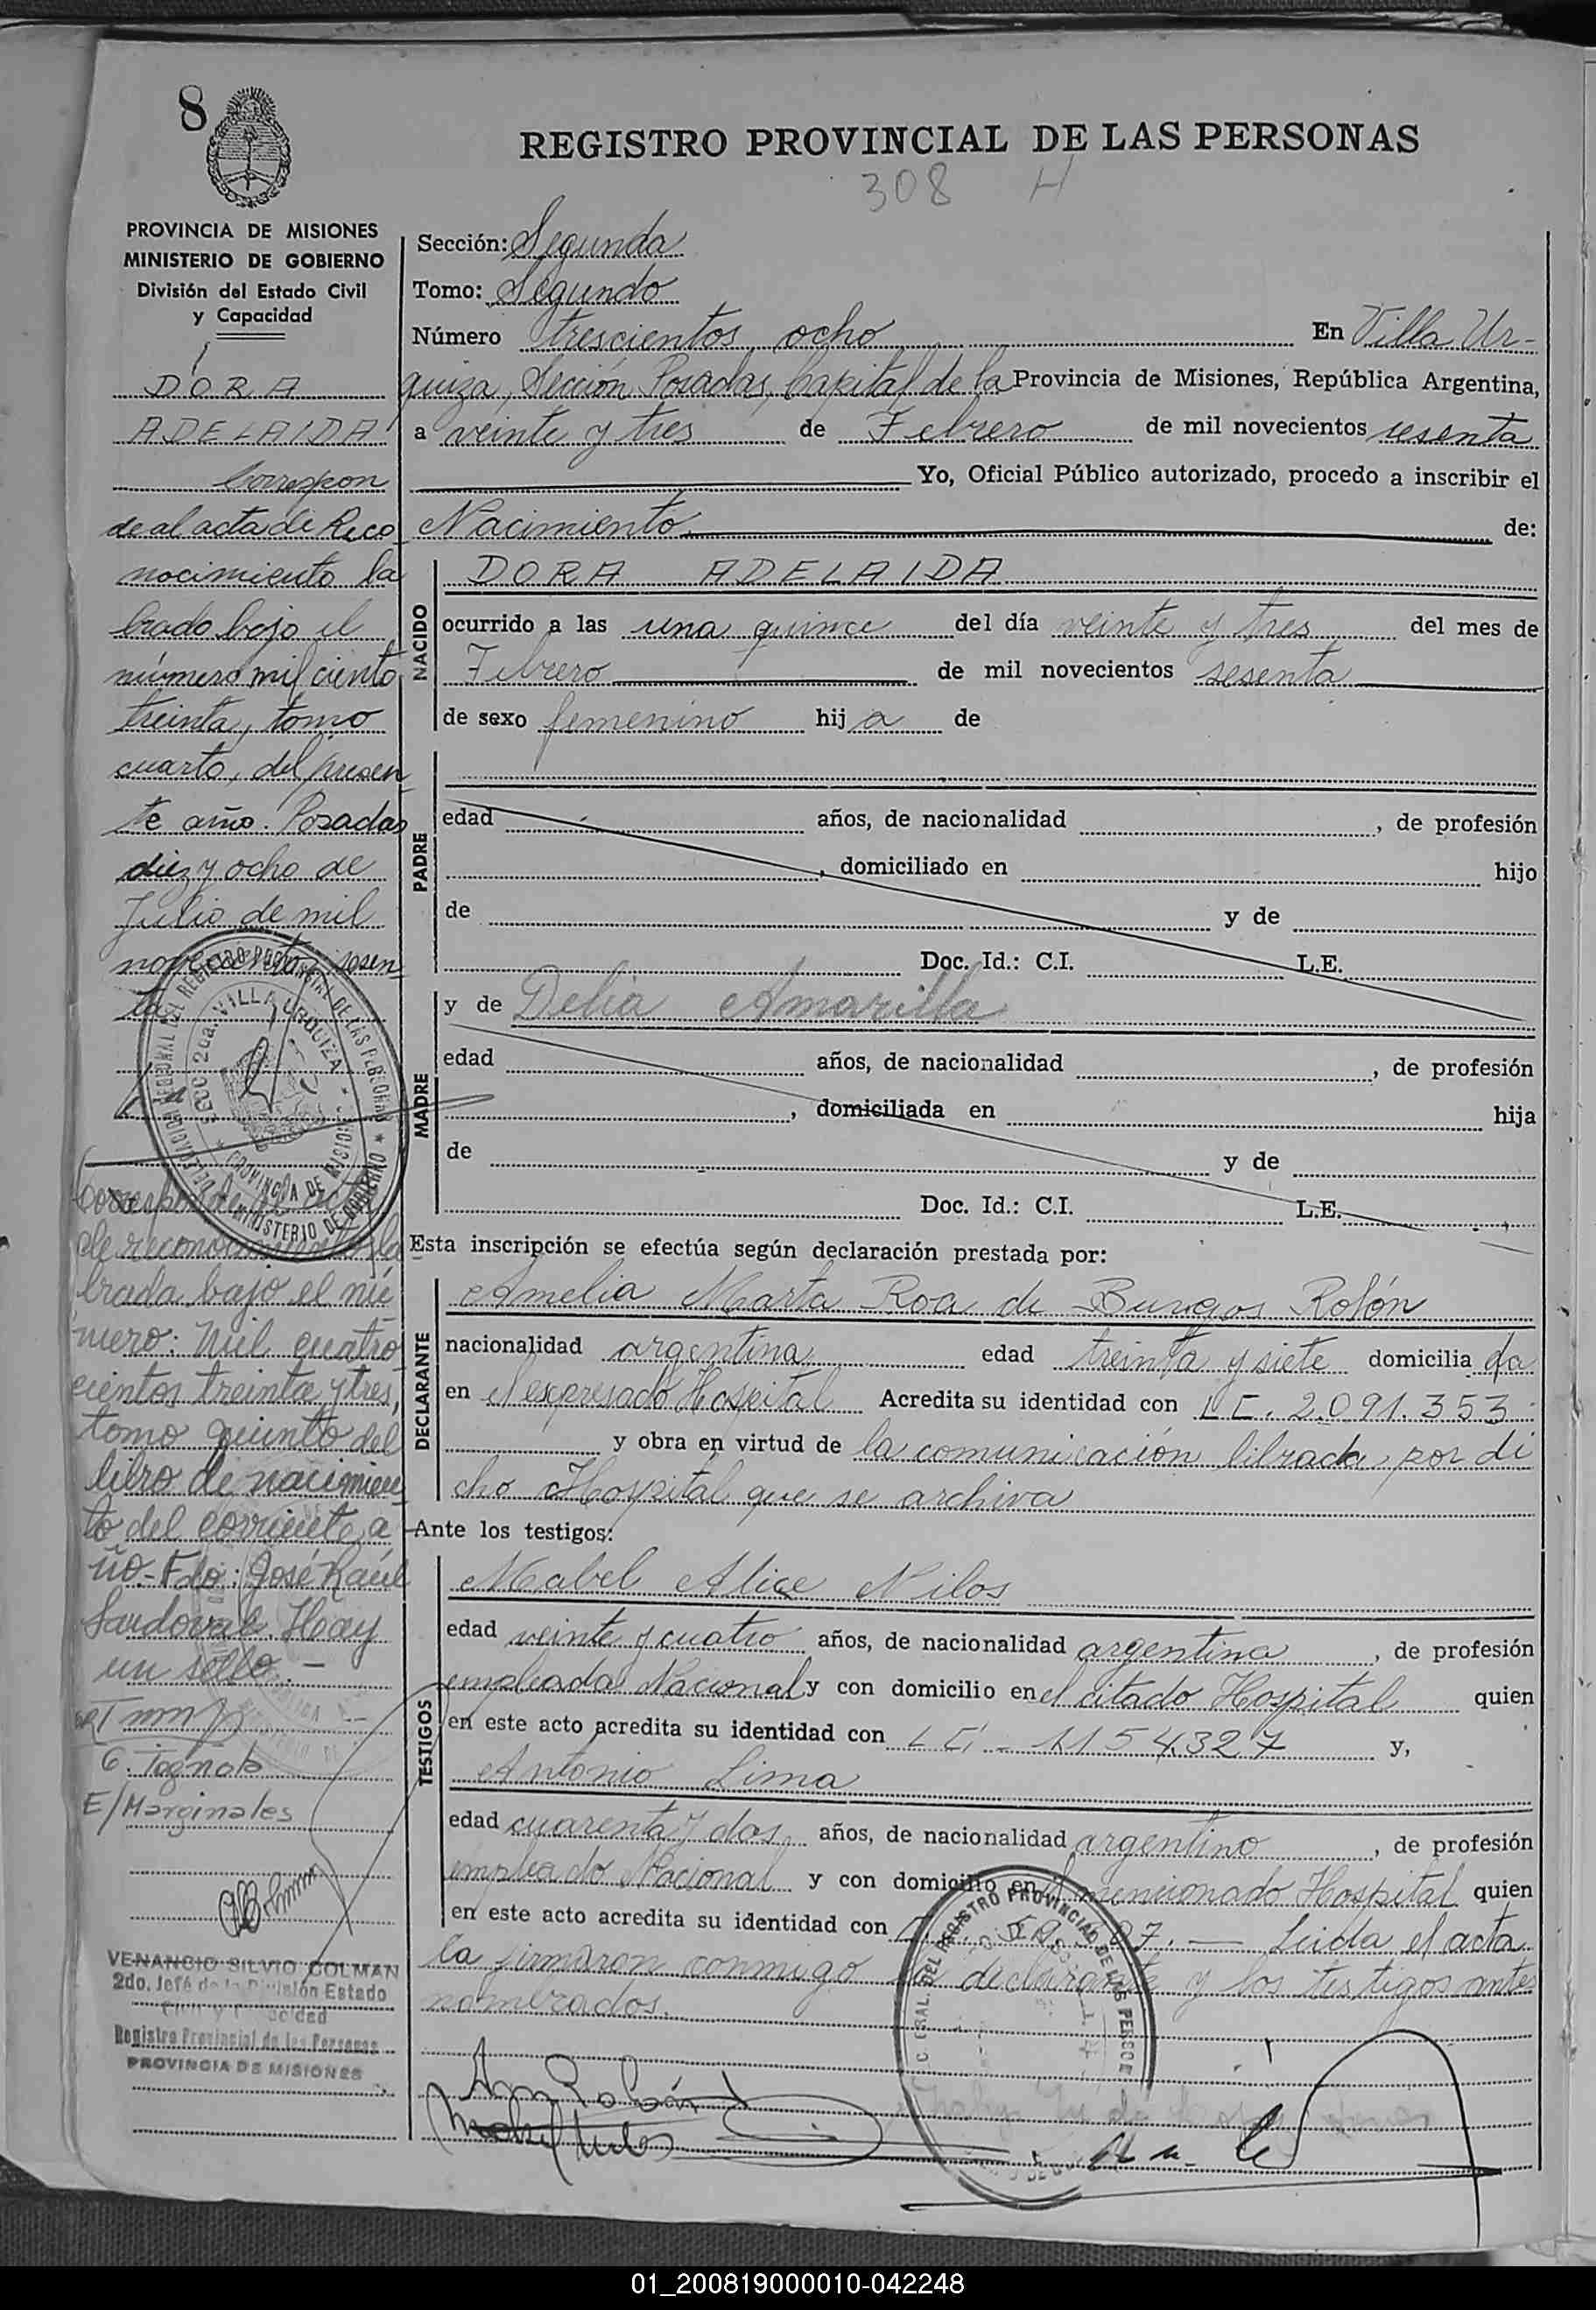 8
REGISTRO PROVINCIAL DE LAS PERSONAS
308 H
PROVINCIA DE MISIONES
MINISTERIO DE GOBIERNO
División del Estado Civil
y Capacidad
DORA
ADELAIDA
Correspon
de al acta de Reco
nocimiento la
brado bajo el
número mil ciento
treinta, tomo
cuarto, del presen
te año. Posadas
diez y ocho de
Julio de mil
novecientos sesen
ta
Corresponde al acta
de reconocimiento la
brada bajo el nú
mero: Mil cuatro
cientos treinta y tres,
tomo quinto del
libro de nacimien
to del corriente a
ño - Fdo: José Raúl
Sandoval. Hay
un sello. -
G. Tagnola
E/Marginales
VENANCIO SILVIO COLMAN
2do. Jefe de la División Estado
Civil y Capacidad
Registro Provincial de las Personas
PROVINCIA DE MISIONES
Sección: Segunda
Tomo: Segundo
Número trescientos ocho En Villa Ur-
quiza, Sección Posadas, Capital de la Provincia de Misiones, República Argentina,
a veinte y tres de Febrero de mil novecientos sesenta
Yo, Oficial Público autorizado, procedo a inscribir el
Nacimiento de:
NACIDO
DORA ADELAIDA
ocurrido a las una quince del día veinte y tres del mes de
Febrero de mil novecientos sesenta
de sexo femenino hij a de
PADRE
edad años, de nacionalidad , de profesión
, domiciliado en hijo
de y de
Doc. Id.: C.I. L.E.
MADRE
y de Delia Amarilla
edad años, de nacionalidad , de profesión
, domiciliada en hija
de y de
Doc. Id.: C.I. L.E.
Esta inscripción se efectúa según declaración prestada por:
DECLARANTE
Amelia Marta Roa de Burgos Rolón
nacionalidad argentina edad treinta y siete domicilia da
en el expresado Hospital Acredita su identidad con L C. 2.091.353
y obra en virtud de la comunicación librada por di
cho Hospital que se archiva
Ante los testigos:
TESTIGOS
Mabel Alice Nilos
edad veinte y cuatro años, de nacionalidad argentina , de profesión
empleada Nacional y con domicilio en el citado Hospital quien
en este acto acredita su identidad con L C. - 1154327 y,
Antonio Lima
edad cuarenta y dos años, de nacionalidad argentino , de profesión
empleado Nacional y con domicilio en el mencionado Hospital quien
en este acto acredita su identidad con Leida el acta
la firmaron conmigo la declarante y los testigos antes
nombrados.
01_200819000010-042248